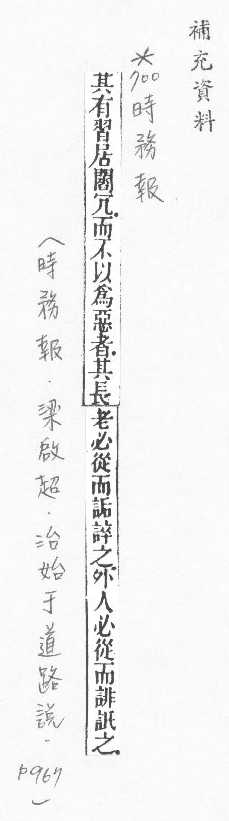 補充資料
*700時務報
其有習居闒冗．而不以爲惡者．其長老必從而詬誶之．外人必從而誹詆之．
（時務報．梁啟超．治始于道路説．p967）